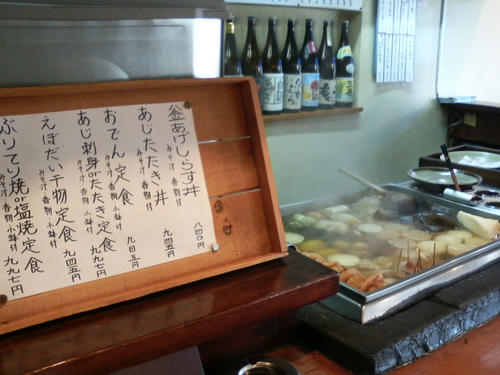 釜あげしらす丼
みそ汁 香物 八四〇円
あじたたき丼
みそ汁 香物 九四五円
おでん定食
みそ汁 香物 小鉢付 八四五円
あじ刺身orたたき定食
みそ汁 香物 小鉢付 九九七円
えぼだい干物定食
みそ汁 香物 小鉢付 九四五円
ぶりてり焼or塩焼定食
みそ汁 香物 小鉢付 九九七円